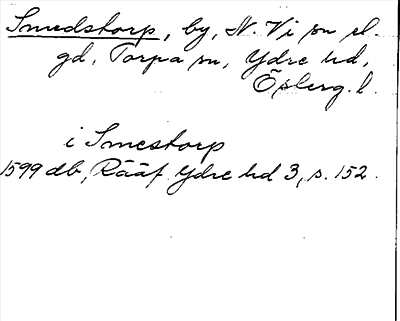 Smedstorp, by, N. Vi sn el.
gd, Torpa sn, Ydre hd,
Österg. l.
i Smestorp
1599 db, Rääf Ydre hd 3, s. 152.